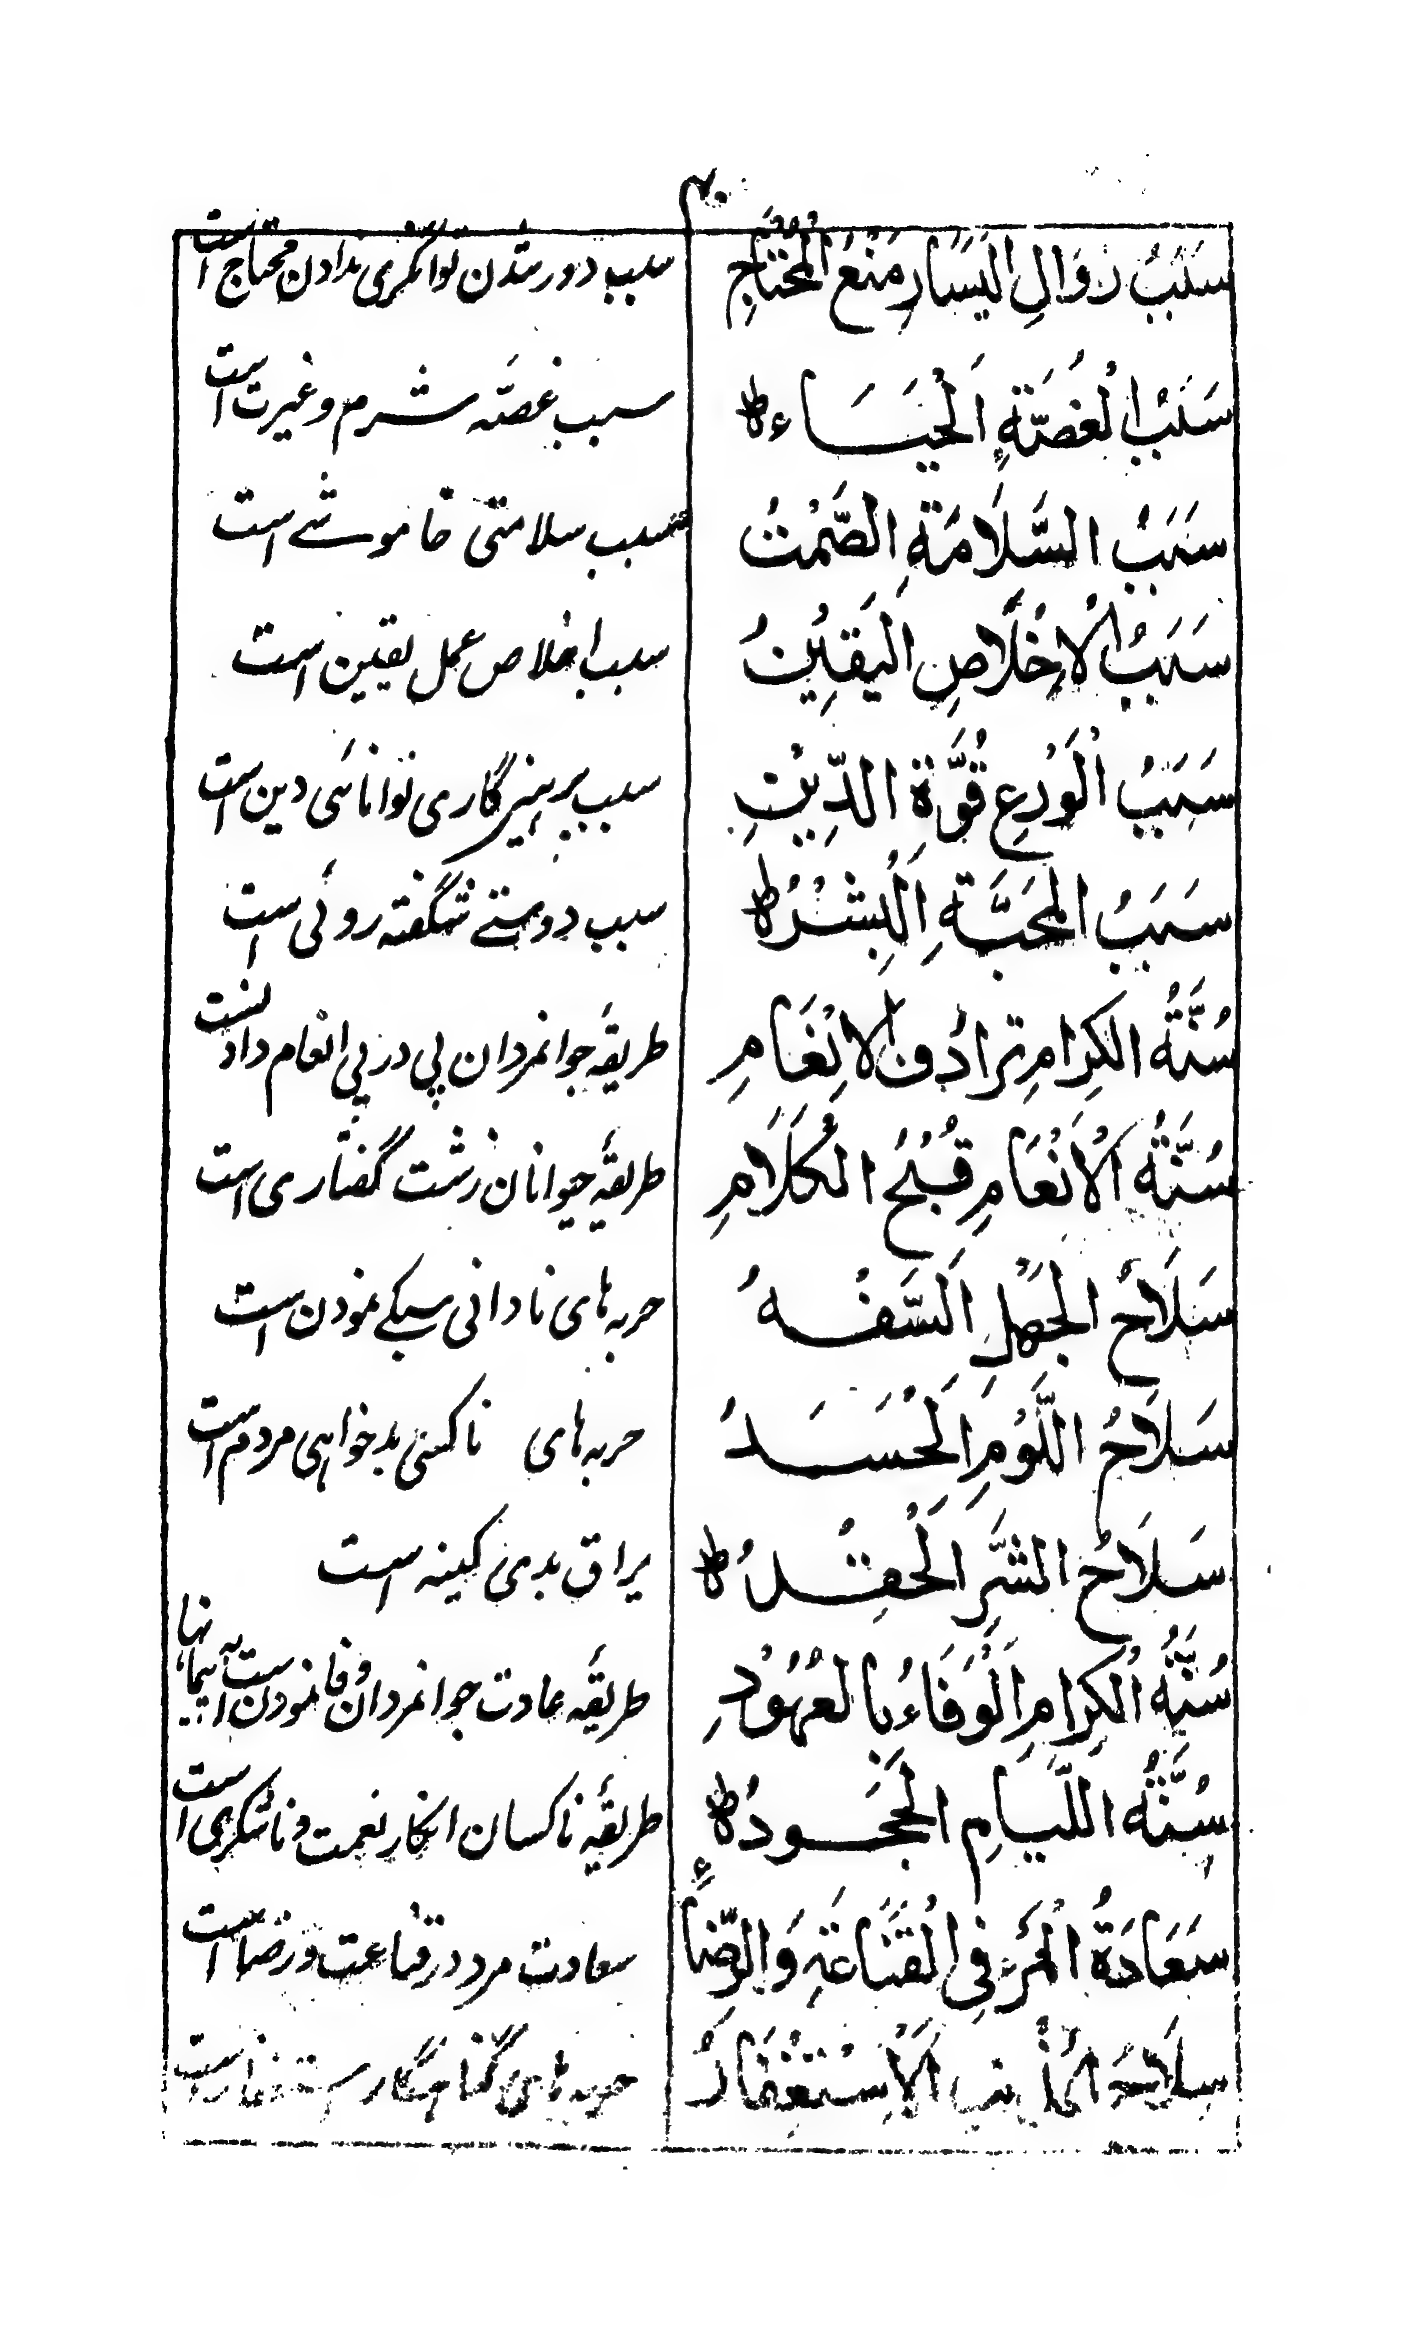 ۴۰
سَبَبُ زَوَالِ الْیَسَارِ مَنْعُ الْمُحْتَاجِ سبب دور شدن توانگری ندادن محتاج است
سَبَبُ الْغُصَّةِ اَلْحَیَاءِ ط سبب غصّه شرم و غیرت است
سَبَبُ السَّلَامَةِ الصَّمْتُ سبب سلامتی خاموشے است
سَبَبُ الْاِخْلَاصِ الْیَقِیْنُ سبب اخلاص عمل یقین است
سَبَبُ الْوَرَعِ قُوَّةُ الدِّیْنِ سبب پرہیزگاری توانائی دین است
سَبَبُ الْمَحَبَّةِ اَلْبِشْرُ ط سبب دوستے شگفته روئی است
سُنَّةُ الْکِرَامِ تَرَادُفُ الْاِنْعَامِ طریقۂ جوانمردان پی در پی انعام دادنست
سُنَّةُ الْاَنْعَامِ قُبْحُ الْکَلَامِ طریقۂ حیوانان زشت گفتاری است
سَلَاحُ الْجَهْلِ اَلسَّفَهُ حربه های نادانی سبکے نمودن است
سَلَاحُ اللَّوْمِ اَلْحَسَدُ حربه های ناکسی بدخواهی مردم است
سَلَاحُ الشَّرِّ اَلْحِقْدُ ط یراق بدی کینه است
سُنَّةُ الْکِرَامِ اَلْوَفَاءُ بِالْعُهُوْدِ طریقۂ عادت جوانمردان وفا نمودن است به پیمانها
سُنَّةُ اللِّیَامِ الْجُحُودُ ط طریقۂ ناکسان انکار نعمت و ناشکری است
سَعَادَةُ الْمَرْءِ فِی الْقَنَاعَةِ وَالرِّضَاءِ سعادت مرد در قناعت و رضا است
سِلَاحُ الْمُذْنِبِ اَلْاِسْتِغْفَارُ حربه های گناهگار استغفار است